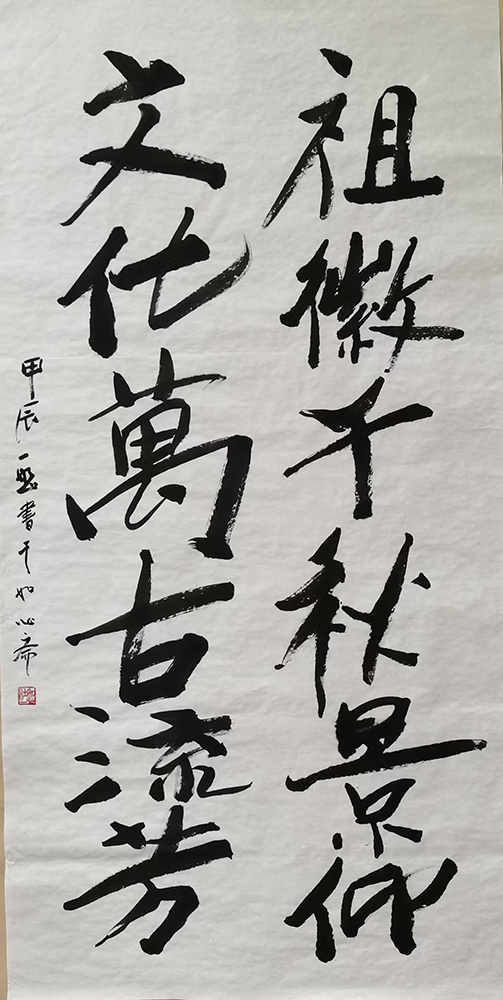 祖徽千秋景仰
文化萬古流芳
甲辰一熙書于如心斋